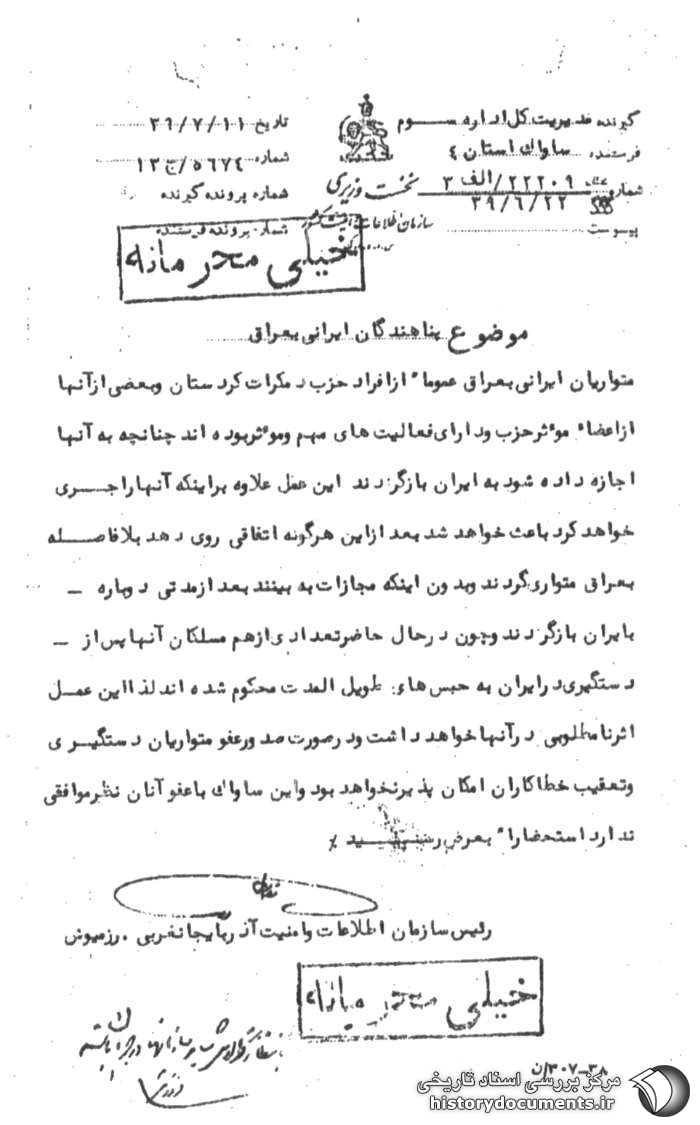 گیرنده مدیریت کل اداره سوم
فرستنده ساواک استان ۴
شماره عطف ۲۲۲۰۹/الف ۳
۳۹/۶/۲۲
پیوست
نخست وزیری
سازمان اطلاعات و امنیت کشور
تاریخ ۳۹/۷/۱۱
شماره ۵۶۷۴/ج ۱۳
شماره پرونده گیرنده
شماره پرونده فرستنده
خیلی محرمانه
موضوع پناهندگان ایرانی بعراق
متواریان ایرانی بعراق عموماً از افراد حزب دمکرات کردستان وبعضی ازآنها
ازاعضاء موثرحزب ودارای فعالیت های مهم وموثربوده اند چنانچه به آنها
اجازه داده شود به ایران بازگردند این عمل علاوه براینکه آنهاراجـــری
خواهد کرد باعث خواهد شد بعد ازاین هرگونه اتفاقی روی دهد بلافاصــله
بعراق متواری گردند وبدون اینکه مجازات به بینند بعد ازمدتی دوباره ـ
بایران بازگردند وچون درحال حاضرتعدادی ازهم مسلکان آنها پس از ـ
دستگیری درایران به حبس های طویل المدت محکوم شده اند لذا این عمـل
اثرنامطلوبی درآنها خواهد داشت ودرصورت صدورعفو متواریان دستگیـری
وتعقیب خطاکاران امکان پذیرنخواهد بود واین ساواک باعفو آنان نظرموافقی
ندارد استحضاراً بعرض رسیـــد ٪
رئیس سازمان اطلاعات وامنیت آذربایجانغربی . رزمپوش
خیلی محرمانه
۳۰۷-۳۸/ن
مرکز بررسی اسناد تاریخی
historydocuments.ir